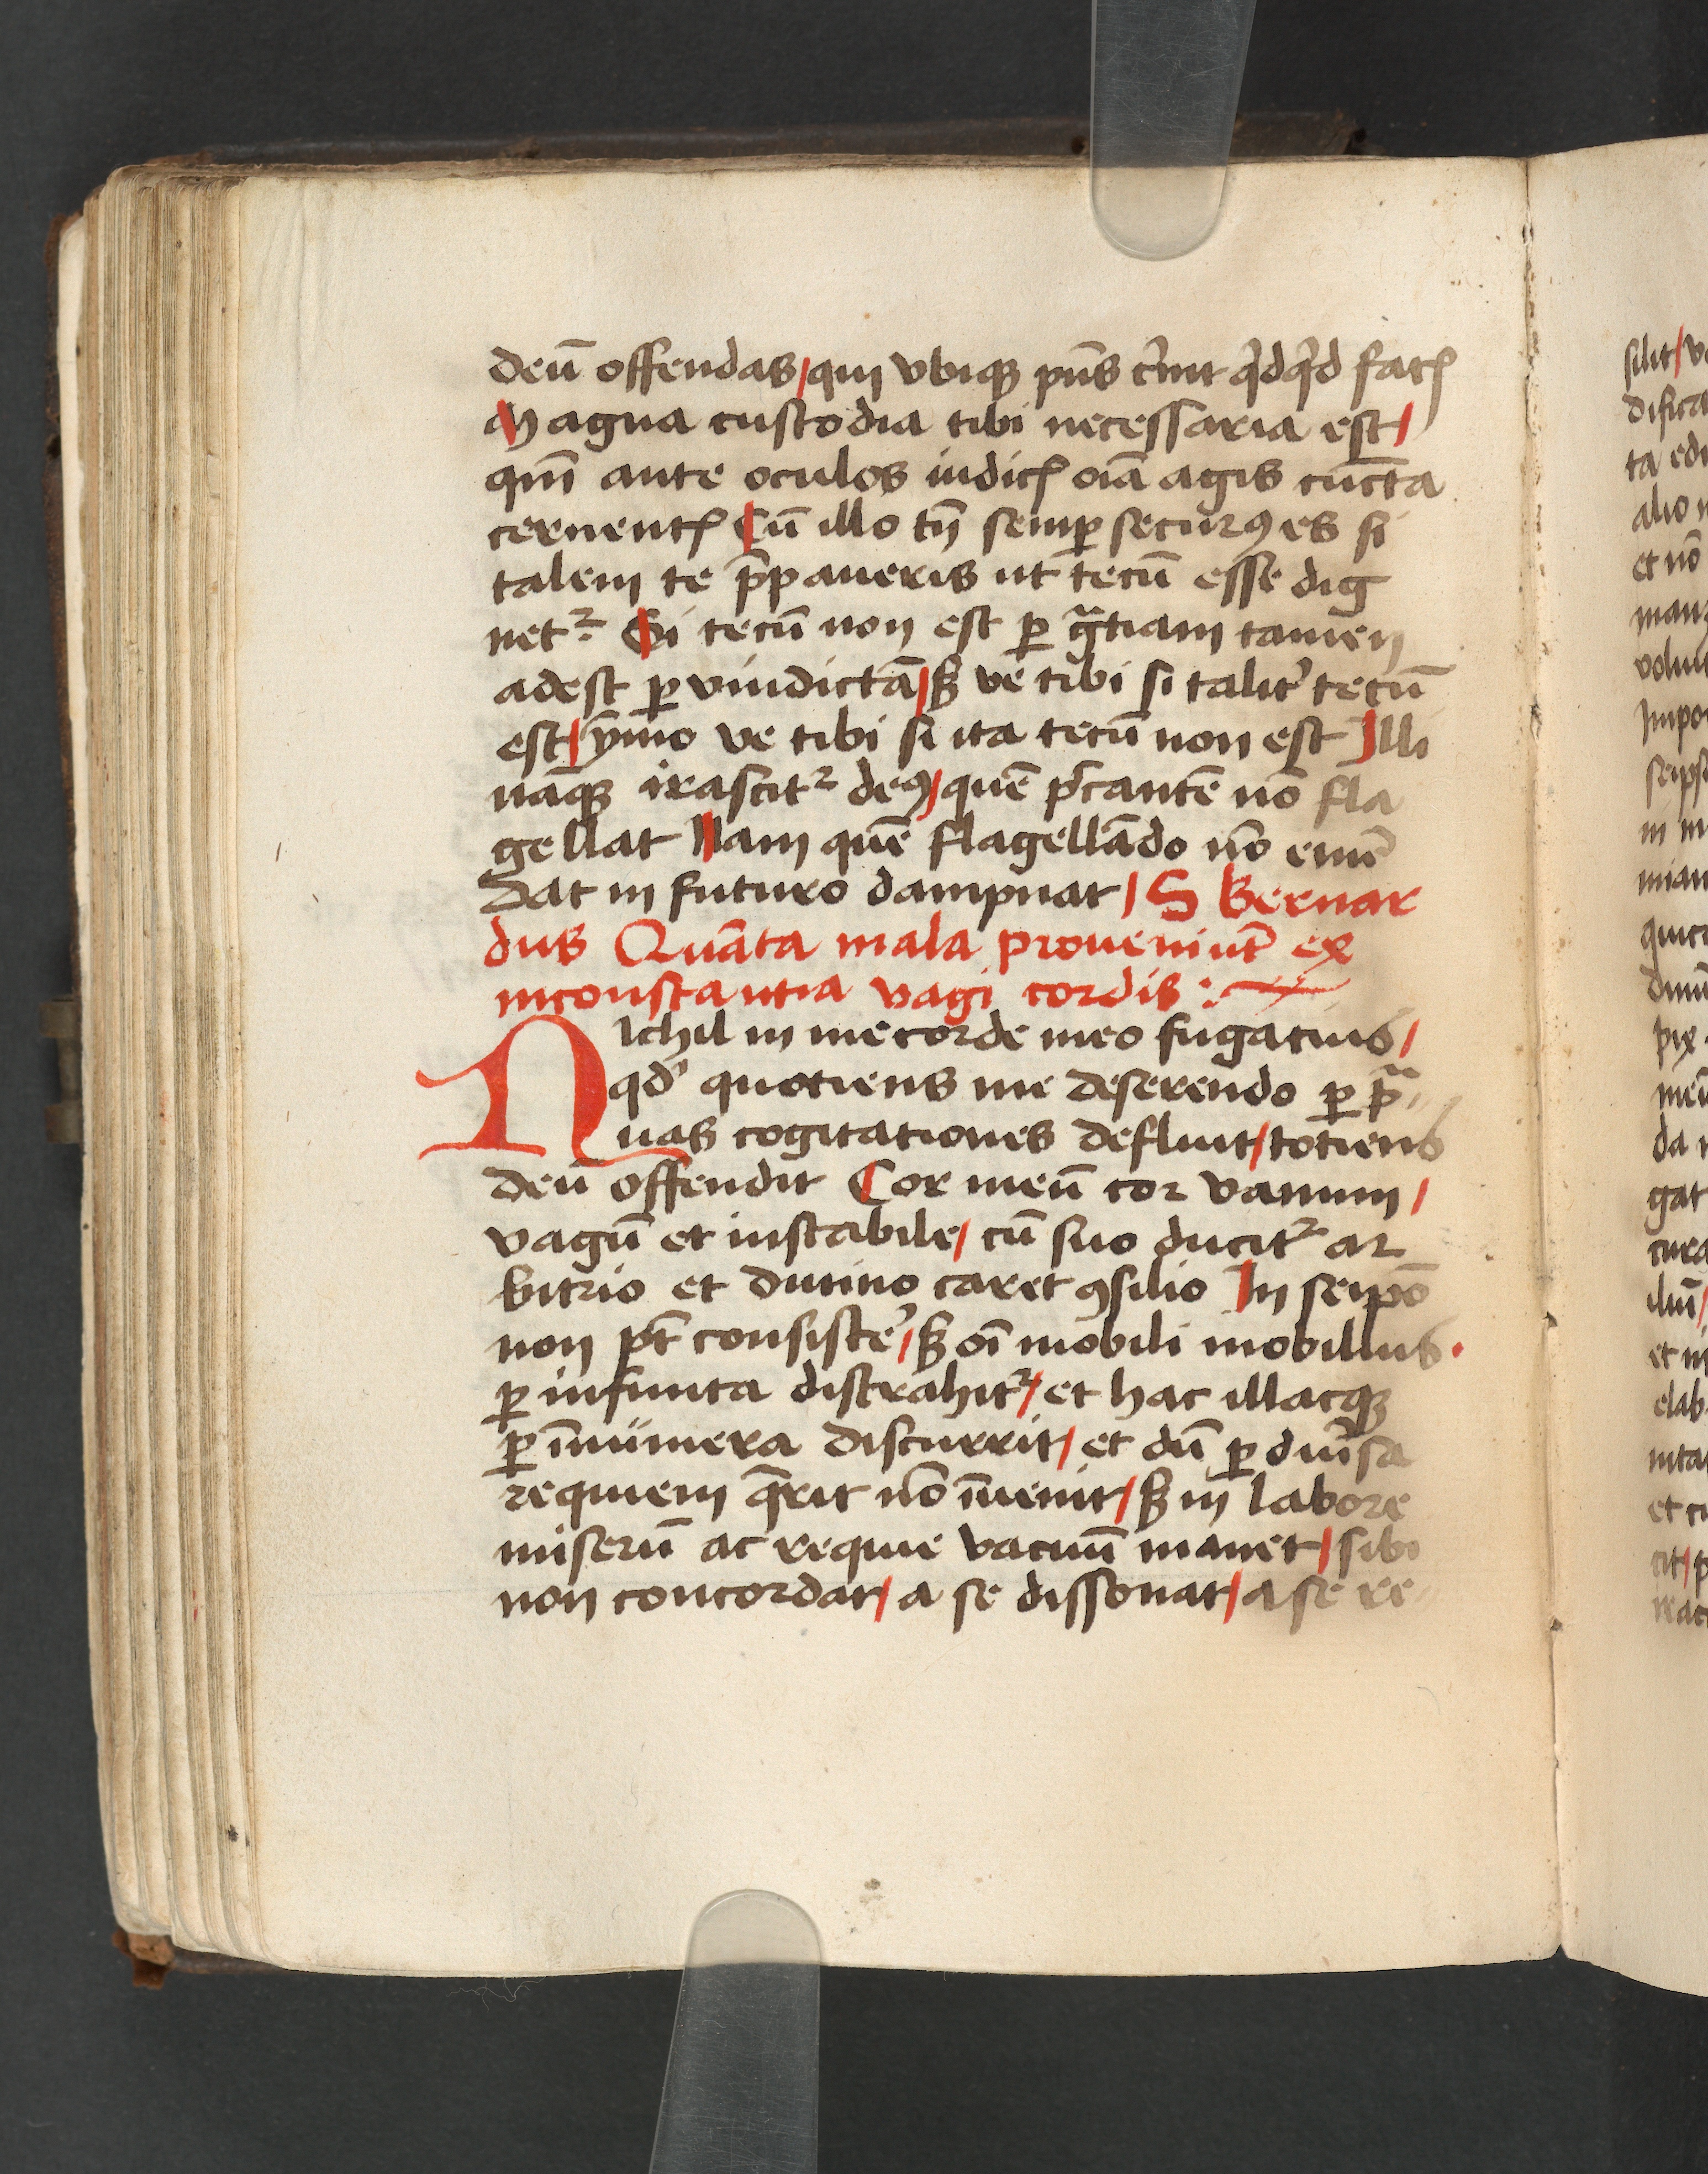 deū offendas/qui vbiqꝫ pn̄s c̓nit qͥdqͥd facꝭ
Magna custodia tibi necessaria est/
qm̄ ante oculos iudicꝭ oīa agis cūcta
cernentꝭ Cū illo tn̄ semꝑ securꝰ es si
talem te p̄paueris ut tecū esse dig
netᷣ. Si tecū non est ꝑ gᷓtiam tamen
adest ꝑ vindictā/sꝫ ve tibi si talit̓ tecū
est/ȳmo ve tibi si ita tecū non est Illi
nāqꝫ irascitᷣ deꝰ/quē pͨcantē nō fla
gellat Nam quē flagellādo nō emē
dat in futuro dampnat/ S Bernar
dus Quāta mala proueniūt ex
inconstantia vagi cordis :
Nichil in me corde meo fugatius/
qd̓ quotiens me deserendo ꝑ pᷓ
uas cogitationes defluit/totiens
deū offendit Cor meū cor vanum/
vagū et instabile/ cū suo ducitᷣ ar
bitrio et diuino caret ꝯsilio In seip̄o
non pt̄ consiste̓/sꝫ oī mobili mobilius.
ꝑ infinita distrahitᷣ/et hac illacqꝫ
ꝑ īnumera discurrit/et dū ꝑ diu̓sa
requiem q̄rit nō īuenit/sꝫ in labore
miserū ac requie vacuū manet/sibi
non concordat/a se dissonat/a se re